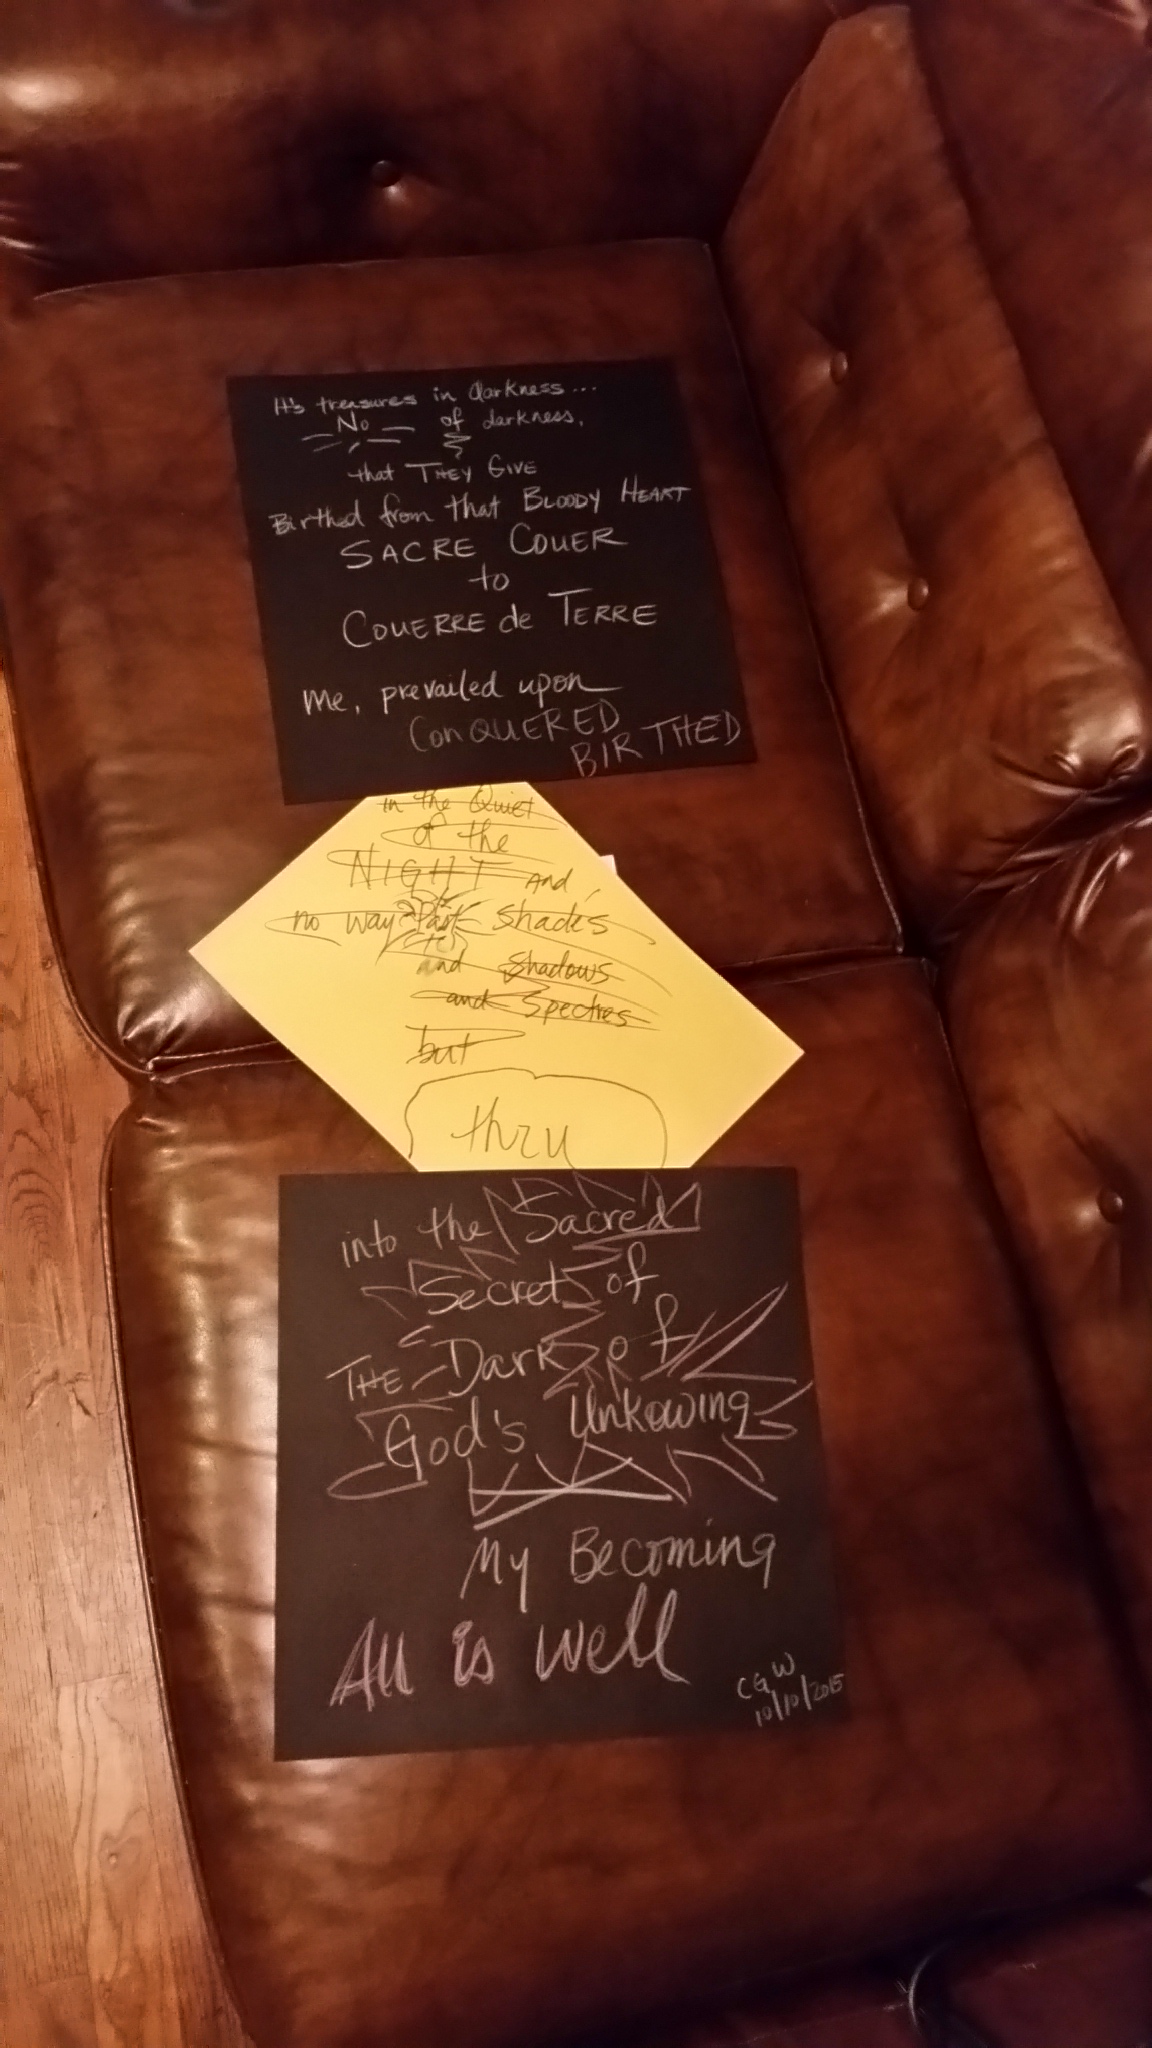 It's treasures in darkness...
No of darkness,
that THEY GIVE
Birthed from that BLOODY HEART
SACRE COUER
to
COUERRE de TERRE
me, prevailed upon
CONQUERED
BIRTHED
in the Quiet
of the
NIGHT And
no way Past shades
and shadows
and Spectres
but
thru
into the Sacred
Secret of
THE Dark of
God's Unkowing
My Becoming
All is well
CGW
10/10/2015